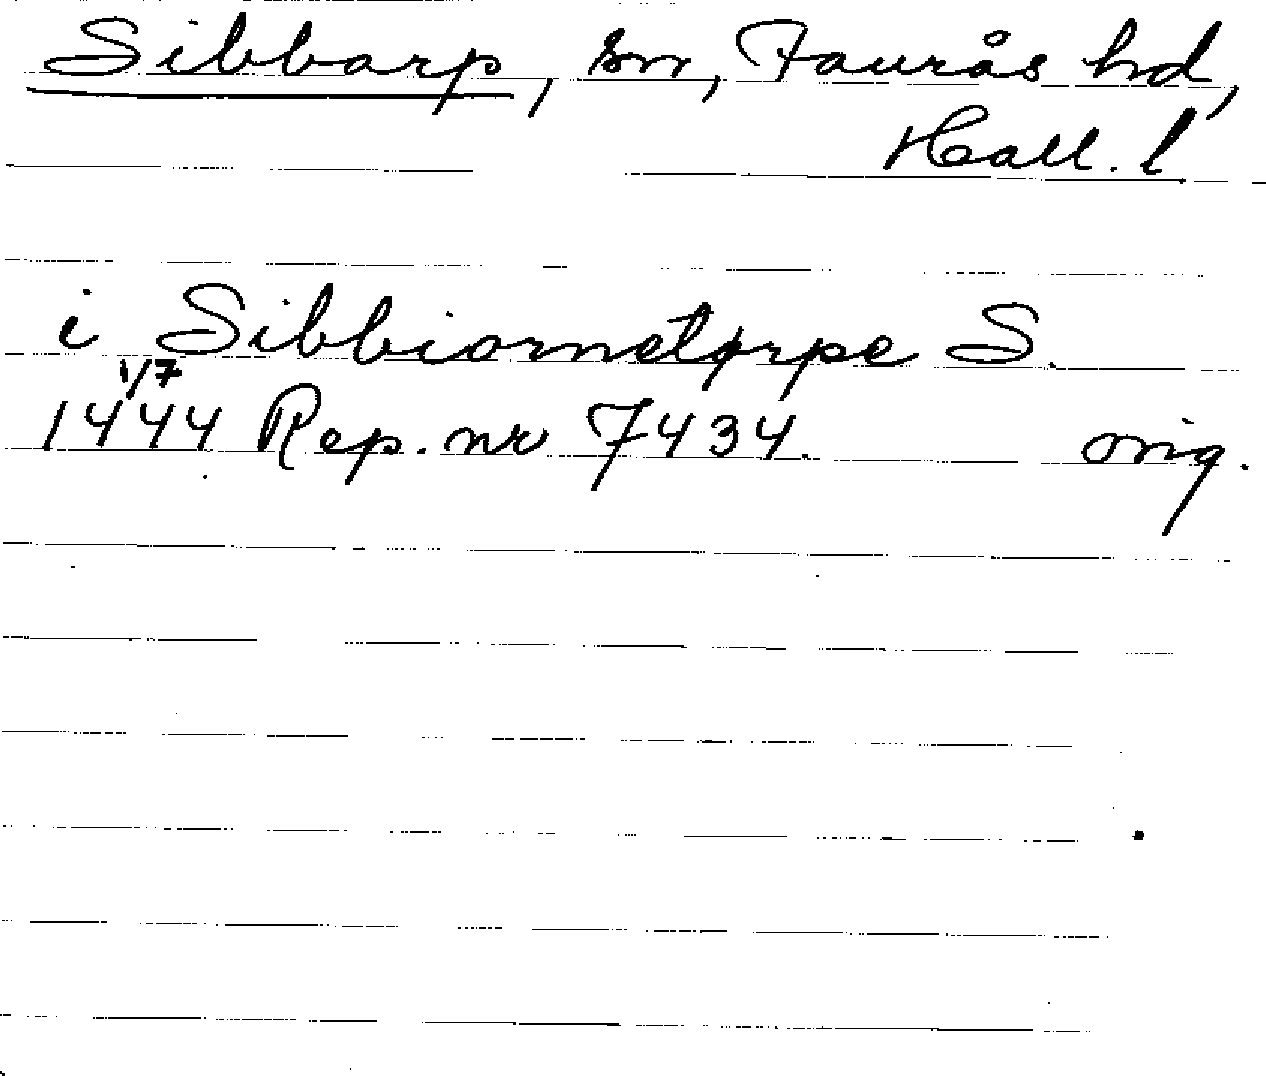 Sibbarp, sn, Faurås hd,
Hall. l
i Sibbiornetørpe S.
1/7
1444 Rep. nr 7434. orig.